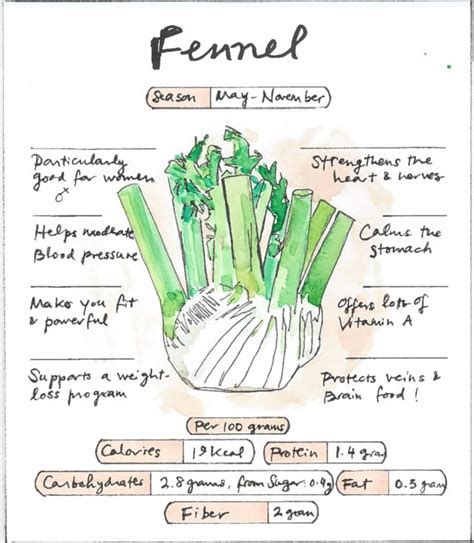 Fennel
Season May - November
Particularly
good for women
♂
Strengthens the
heart & nerves
Helps moderate
Blood pressure
Calms the
stomach
Makes you fit
& powerful
Offers lots of
Vitamin A
Supports a weight-
loss program
Protects veins &
Brain food!
Per 100 grams
Calories 19 kcal Protein 1.4 gram
Carbohydrates 2.8 grams, from sugar: 0.4g Fat 0.3 gram
Fiber 2 gram